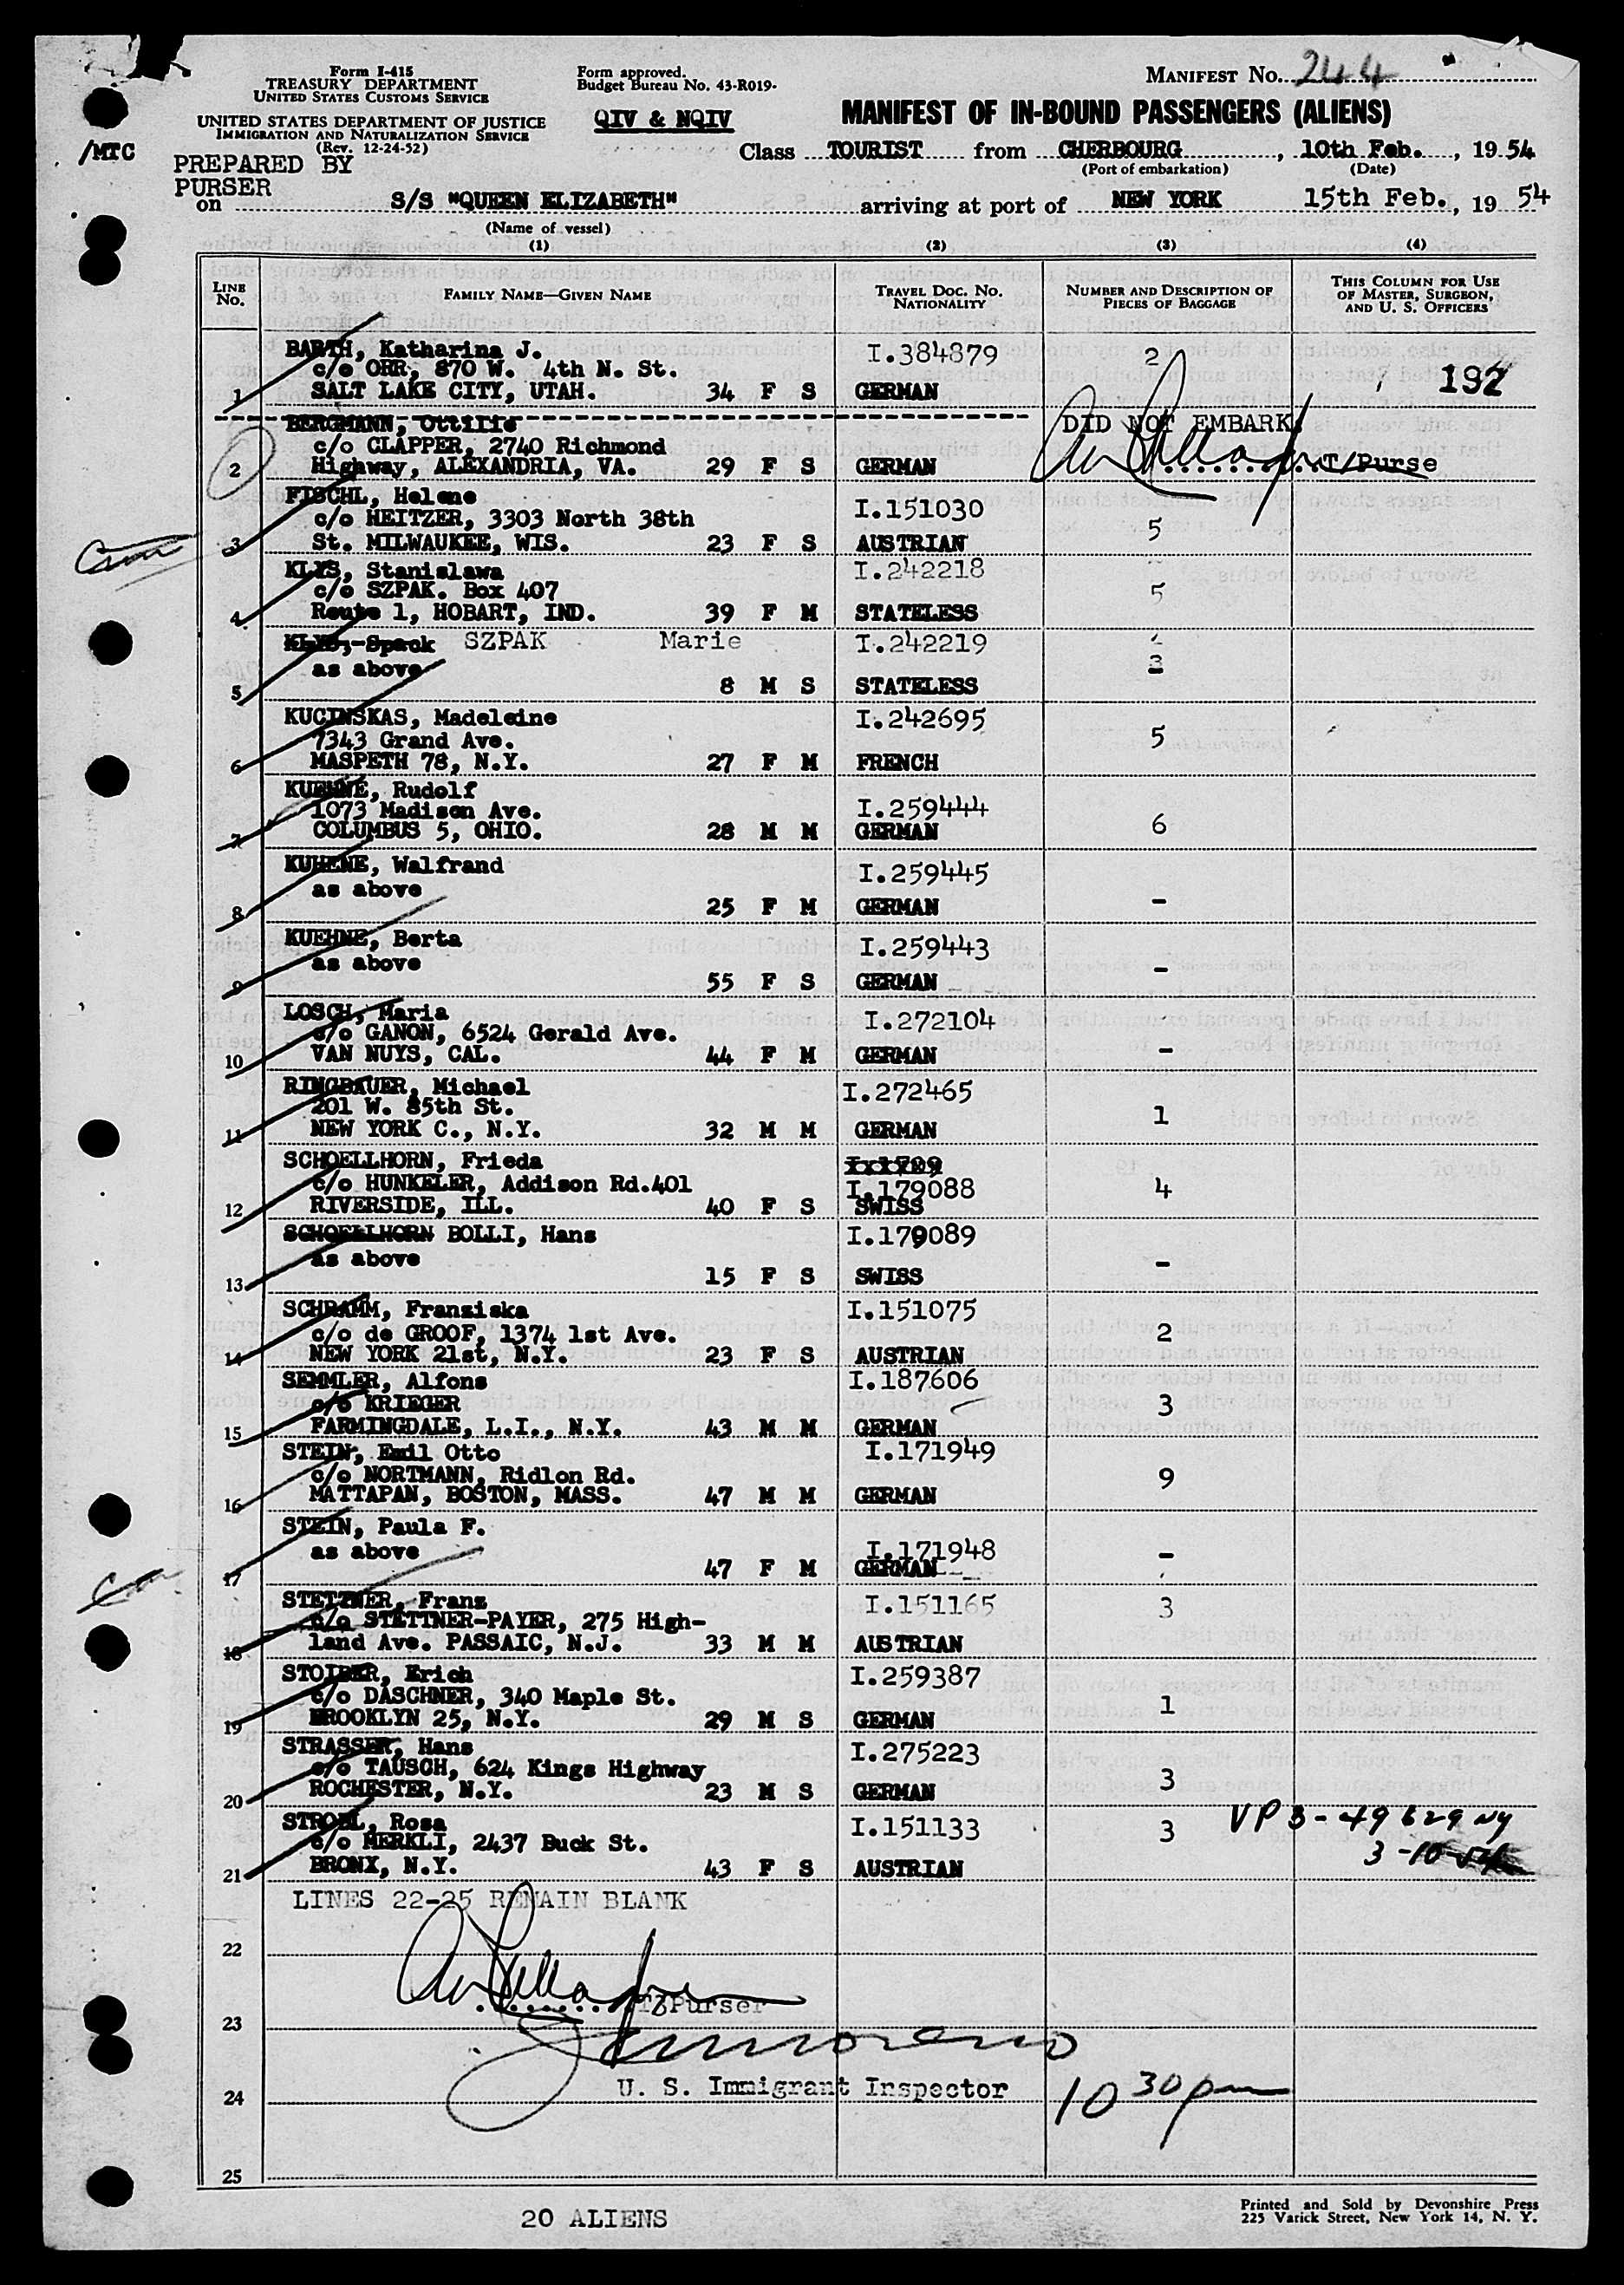 Form I-415
TREASURY DEPARTMENT
UNITED STATES CUSTOMS SERVICE
UNITED STATES DEPARTMENT OF JUSTICE
IMMIGRATION AND NATURALIZATION SERVICE
(Rev. 12-24-52)
Form approved.
Budget Bureau No. 43-R019-
QIV & NQIV
MANIFEST No. 244
MANIFEST OF IN-BOUND PASSENGERS (ALIENS)
/MTC
PREPARED BY
PURSER
Class TOURIST from CHERBOURG, 10th Feb., 19 54
(Port of embarkation) (Date)
on S/S "QUEEN ELIZABETH" arriving at port of NEW YORK 15th Feb., 19 54
(Name of vessel)
(1) (2) (3) (4)
LINE No. FAMILY NAME—GIVEN NAME TRAVEL DOC. NO. NATIONALITY NUMBER AND DESCRIPTION OF PIECES OF BAGGAGE THIS COLUMN FOR USE OF MASTER, SURGEON, AND U. S. OFFICERS
BARTH, Katharina J. I.384879 2
c/o ORR, 870 W. 4th N. St.
1 SALT LAKE CITY, UTAH. 34 F S GERMAN 192
BERGMANN, Ottilie DID NOT EMBARK
c/o CLAPPER, 2740 Richmond
2 Highway, ALEXANDRIA, VA. 29 F S GERMAN T/Purse
FISCHL, Helene I.151030
c/o HEITZER, 3303 North 38th 5
3 St. MILWAUKEE, WIS. 23 F S AUSTRIAN
KLYS, Stanislawa I.242218
c/o SZPAK. Box 407 5
4 Route 1, HOBART, IND. 39 F M STATELESS
KLYS, Spack SZPAK Marie I.242219
as above 3
5 8 M S STATELESS
KUCINSKAS, Madeleine I.242695
7343 Grand Ave. 5
6 MASPETH 78, N.Y. 27 F M FRENCH
KUEHNE, Rudolf
1073 Madison Ave. I.259444
7 COLUMBUS 5, OHIO. 28 M M GERMAN 6
KUHENE, Walfrand I.259445
as above
8 25 F M GERMAN -
KUEHNE, Berta I.259443
as above -
9 55 F S GERMAN
LOSCH, Maria I.272104
c/o GANON, 6524 Gerald Ave.
10 VAN NUYS, CAL. 44 F M GERMAN -
RINGBAUER, Michael I.272465
201 W. 85th St. 1
11 NEW YORK C., N.Y. 32 M M GERMAN
SCHOELLHORN, Frieda
c/o HUNKELER, Addison Rd.401 I.179088 4
12 RIVERSIDE, ILL. 40 F S SWISS
SCHOELLHORN BOLLI, Hans I.179089
as above -
13 15 F S SWISS
SCHRAMM, Franziska I.151075
c/o de GROOF, 1374 1st Ave. 2
14 NEW YORK 21st, N.Y. 23 F S AUSTRIAN
SEMMLER, Alfons I.187606
c/o KRIEGER 3
15 FARMINGDALE, L.I., N.Y. 43 M M GERMAN
STEIN, Emil Otto I.171949
c/o NORTMANN, Ridlon Rd. 9
16 MATTAPAN, BOSTON, MASS. 47 M M GERMAN
STEIN, Paula F.
as above I.171948 -
17 47 F M GERMAN
STETTNER, Franz I.151165 3
c/o STETTNER-PAYER, 275 High-
18 land Ave. PASSAIC, N.J. 33 M M AUSTRIAN
STOIBER, Erich I.259387
c/o DASCHNER, 340 Maple St. 1
19 BROOKLYN 25, N.Y. 29 M S GERMAN
STRASSER, Hans I.275223
c/o TAUSCH, 624 Kings Highway 3
20 ROCHESTER, N.Y. 23 M S GERMAN
STROBL, Rosa I.151133 3 VP 3-49629 NY
c/o MERKLI, 2437 Buck St. 3-10-54
21 BRONX, N.Y. 43 F S AUSTRIAN
LINES 22-25 REMAIN BLANK
22
T/Purser
23
U. S. Immigrant Inspector 10 30 pm
24
25
20 ALIENS
Printed and Sold by Devonshire Press
225 Varick Street, New York 14, N. Y.